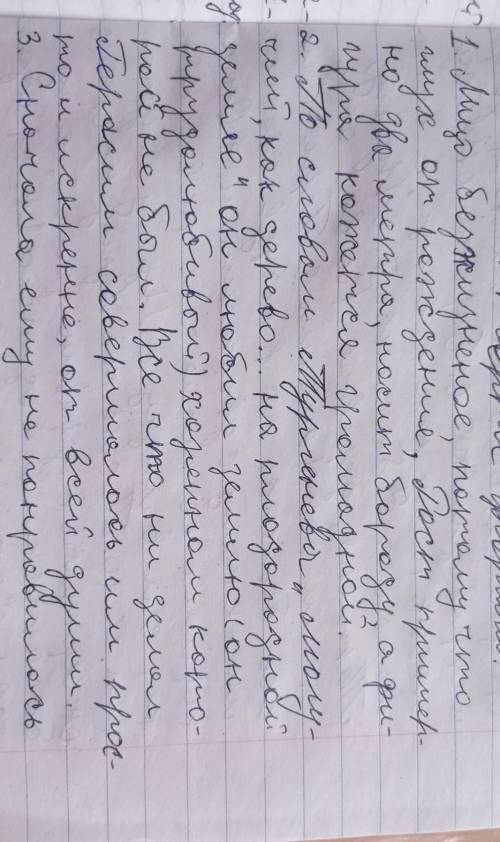 1. Лицо безжизненое, потому что
глух от рождение, Рост пример-
но два метра, носит бороду, а фи-
гура кажется громадной.
2. По словам Тургенева "могу-
чий, как дерево... на плодородной
земле" он любил землю (он
трудолюбивый)
рой не был. Все что ни делал
Герасим совершалось им прос-
то и искренне, от всей души.
3. Сночала ему не понравилось